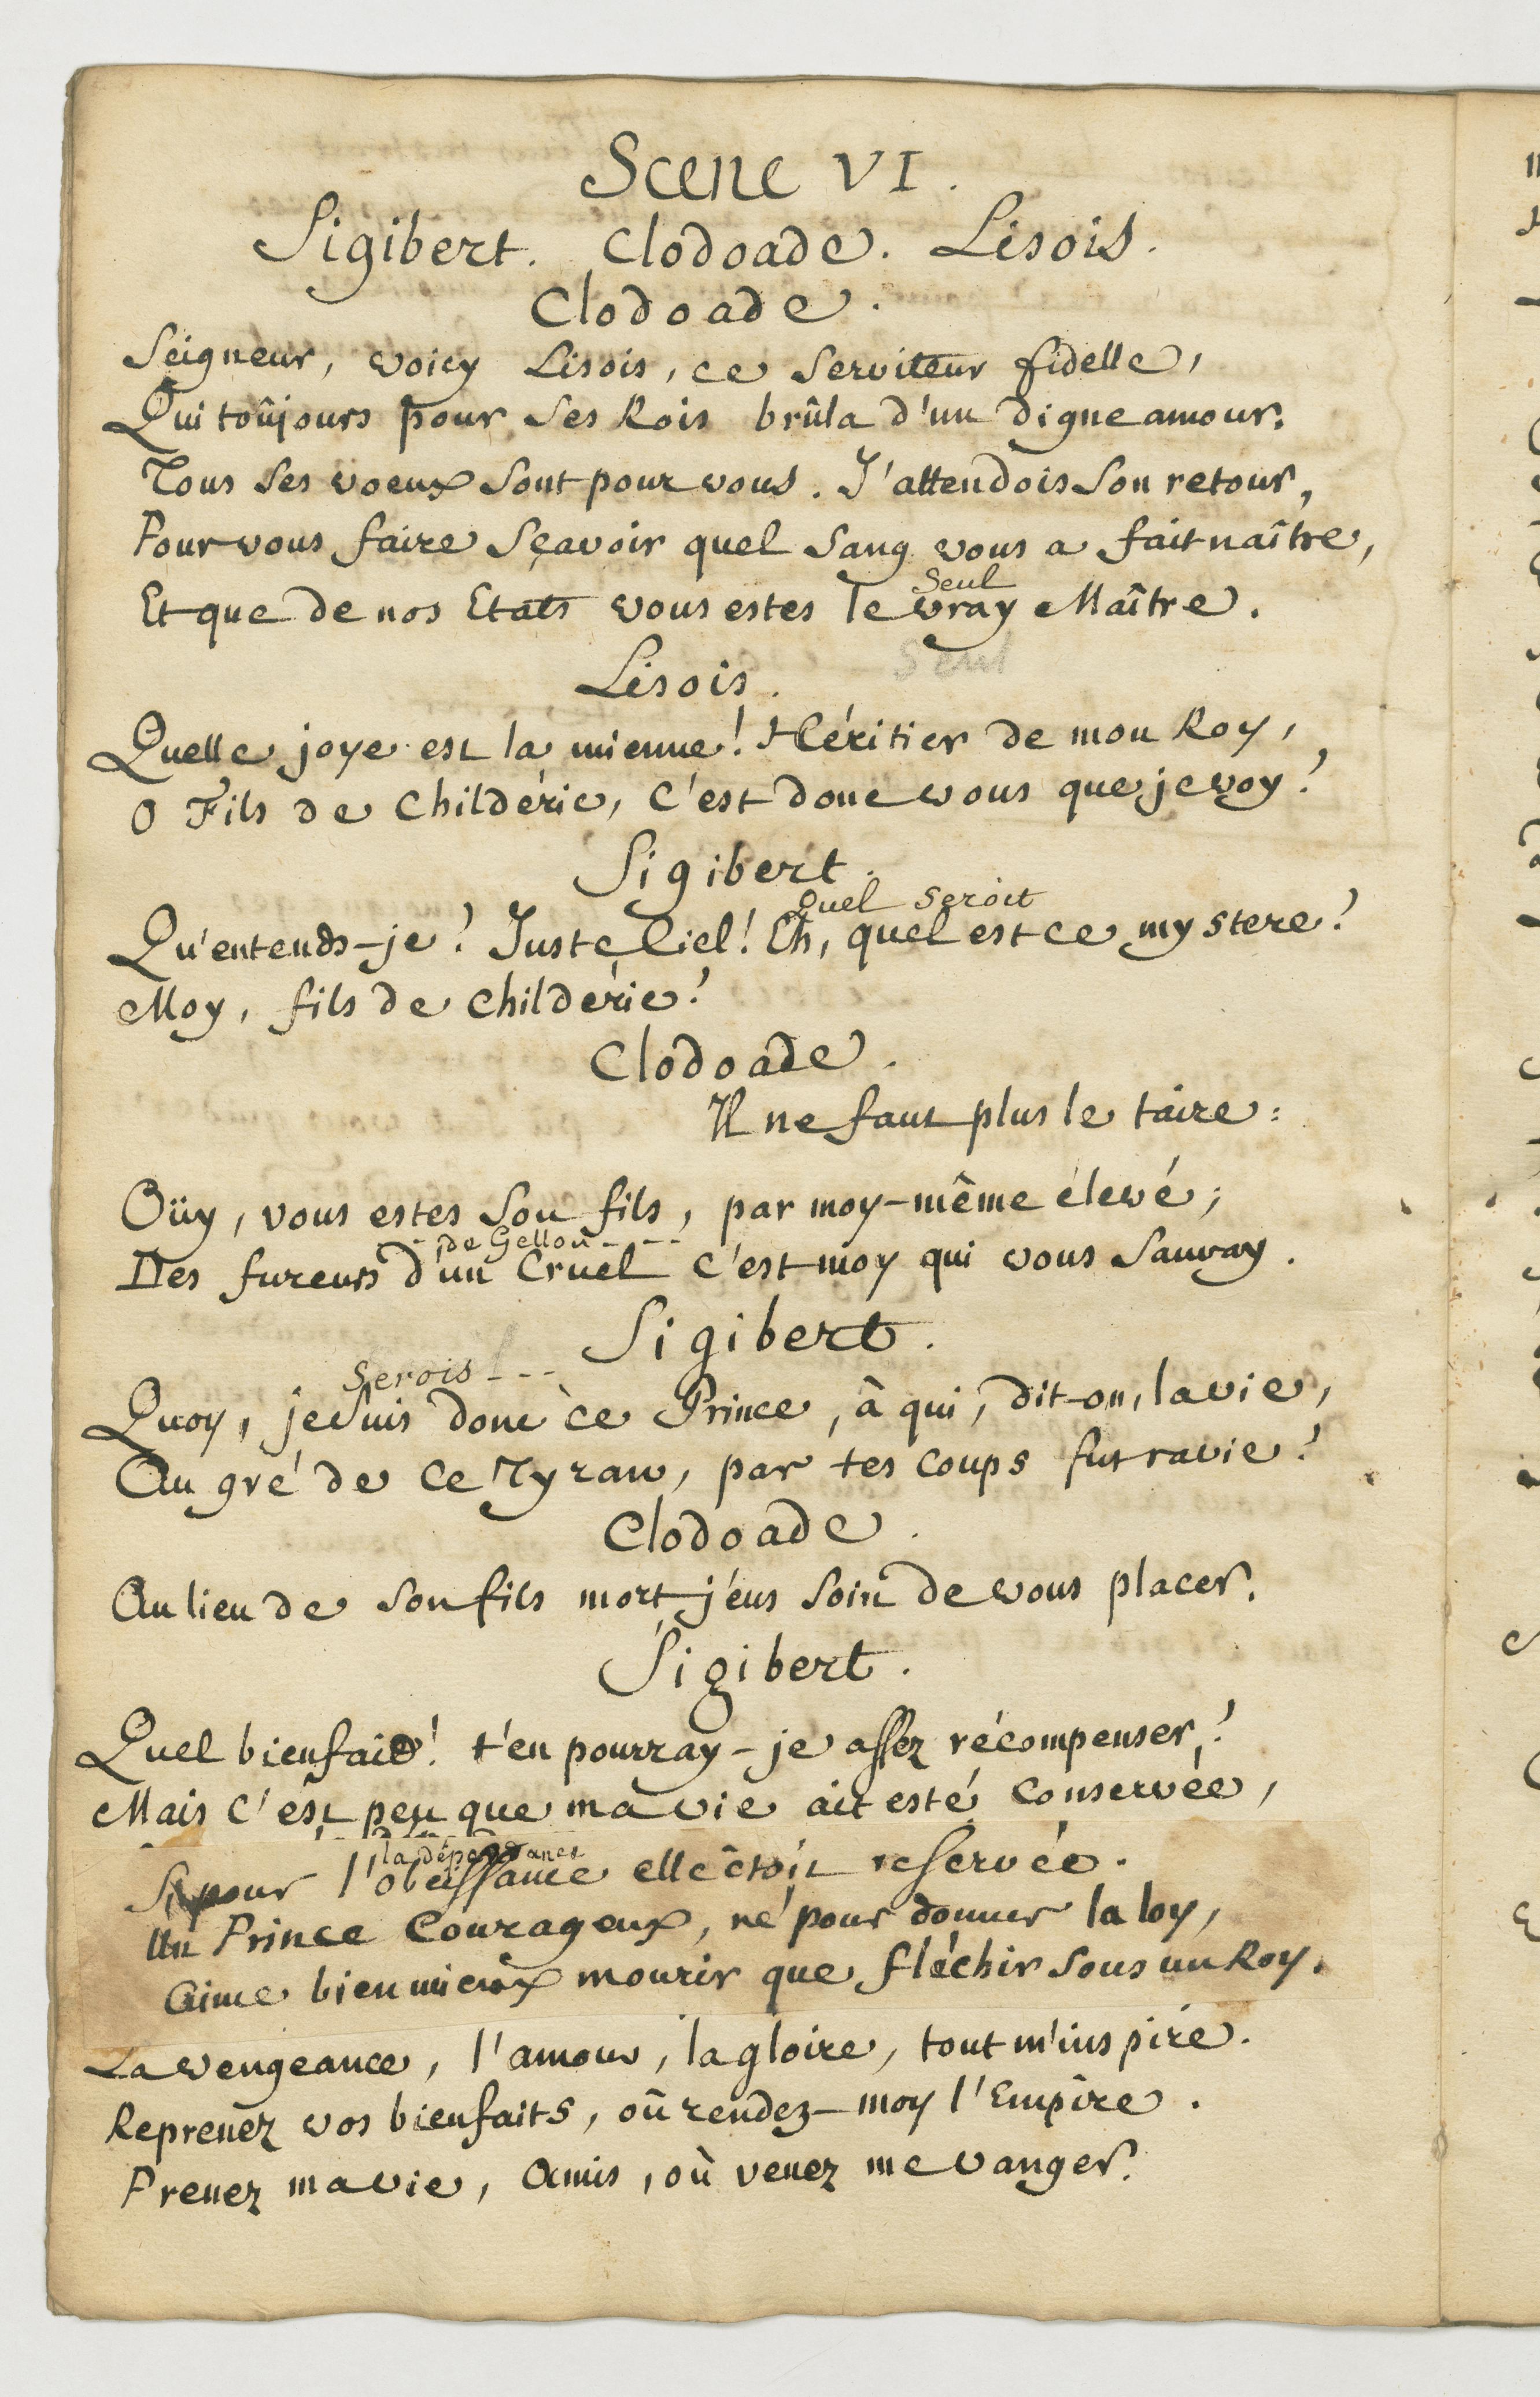 Scene VI.
Sigibert. Clodoade. Lisois.
Clodoade.
Seigneur, voicy Lisois, ce Serviteur fidelle,
Qui toûjours pour Ses Rois brûla d'un digne amour.
Tous Ses voeux Sont pour vous. J'attendois Son retour,
Pour vous faire Sçavoir quel Sang vous a fait naître,
Seul
Et que de nos Etats vous estes le vray Maître.
Seul
Lisois.
Quelle joye est la mienne! Héritier de mon Roy,
O Fils de Childéric, c'est donc vous que je voy?
Sigibert.
Quel seroit
Qu'entends-je? Juste Ciel! Eh, quel est ce mystere?
Moy, fils de Childéric?
Clodoade.
Il ne faut plus le taire:
Oüy, vous estes Son fils, par moy-même élevé;
de Gellon
Des fureurs d'un Cruel c'est moy qui vous Sauvay.
Sigibert.
Serois
Quoy, je Suis donc ce Prince, à qui, dit-on, la vie,
Au gré de ce Tyran, par tes coups fut ravie?
Clodoade.
Au lieu de Son fils mort j'eus Soin de vous placer.
Sigibert.
Quel bienfait! t'en pourray-je assez récompenser?
Mais c'est peu que ma vie ait esté conservée,
la dépendance
Si pour l'obeissance elle étoit reservée.
Un Prince Courageux, né pour donner la loy,
Aime bien mieux mourir que fléchir Sous un Roy.
La vengeance, l'amour, la gloire, tout m'inspire.
Reprenez vos bienfaits, où rendez-moy l'Empire.
Prenez ma vie, Amis, où venez me vanger.